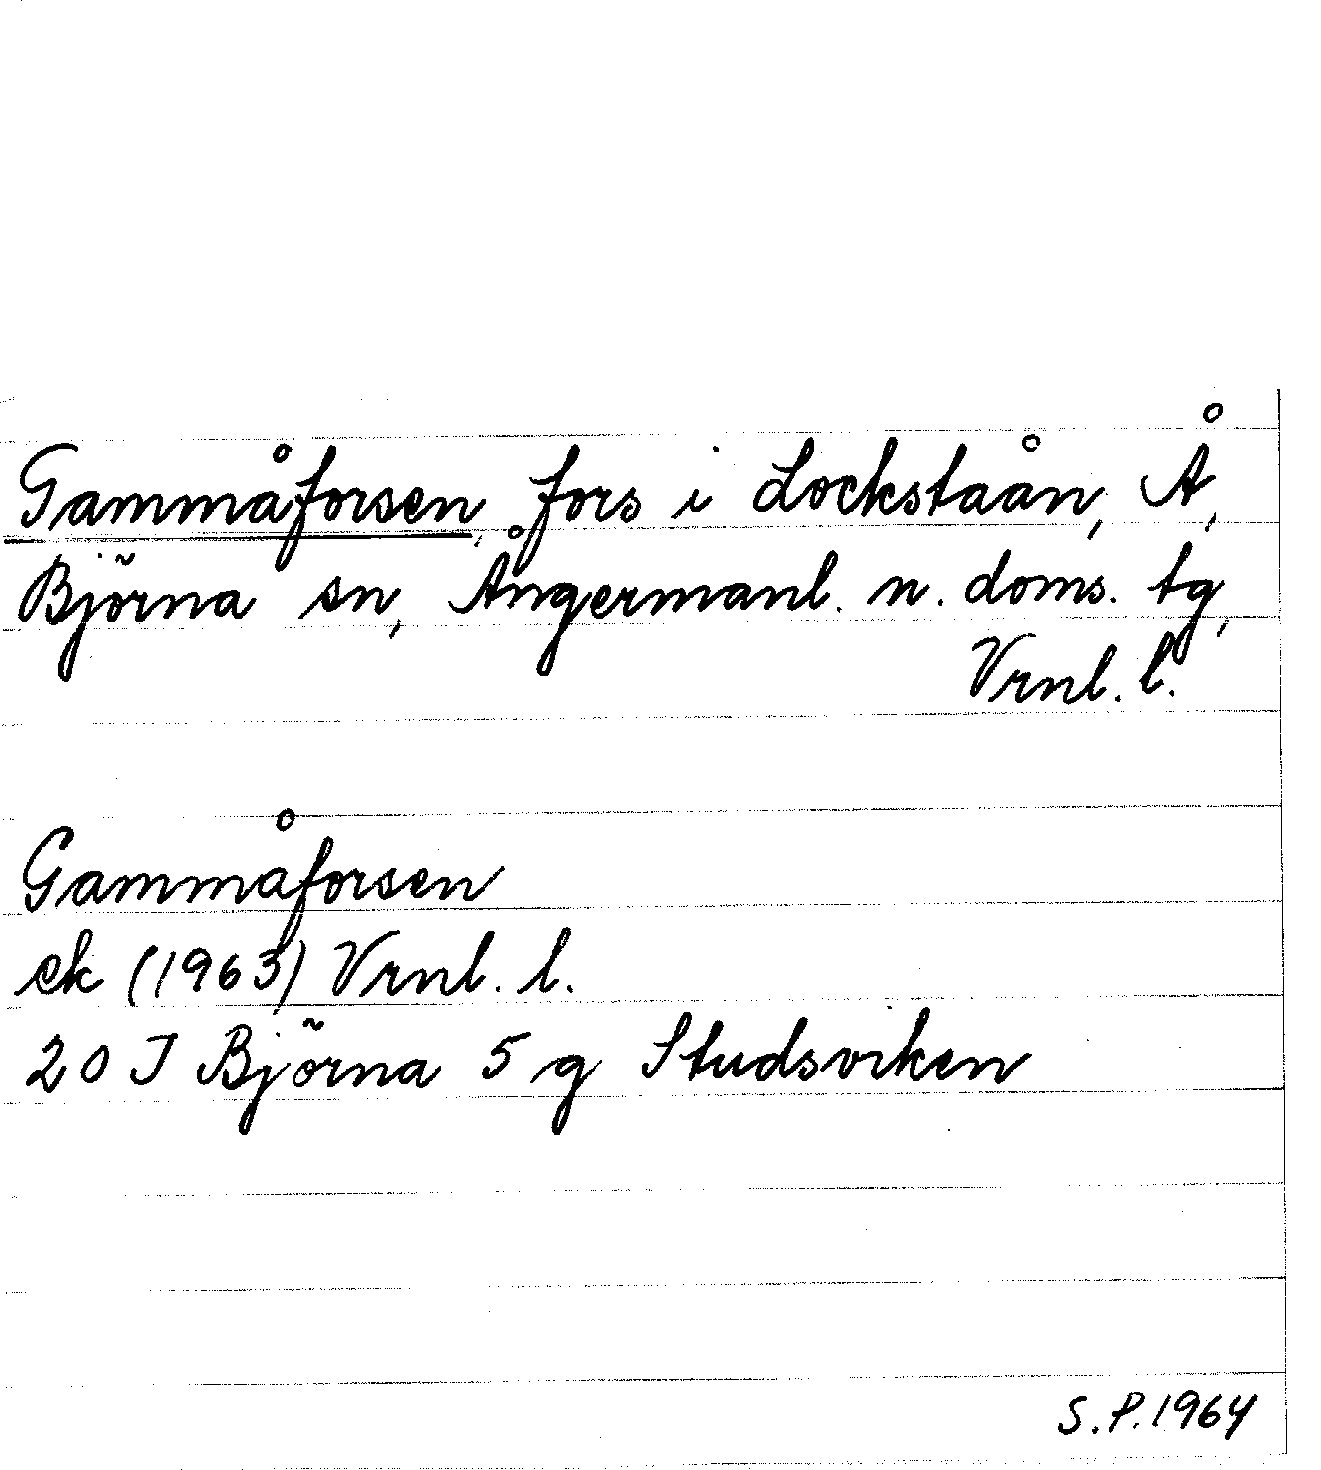 Gammåforsen, fors i Lockstaån, Å,
Björna sn, Ångermanl. n. doms. tg,
Vrnl. l.
Gammåforsen
ek (1963) Vrnl. l.
20 J Björna 5 g Studsviken
S.P. 1964